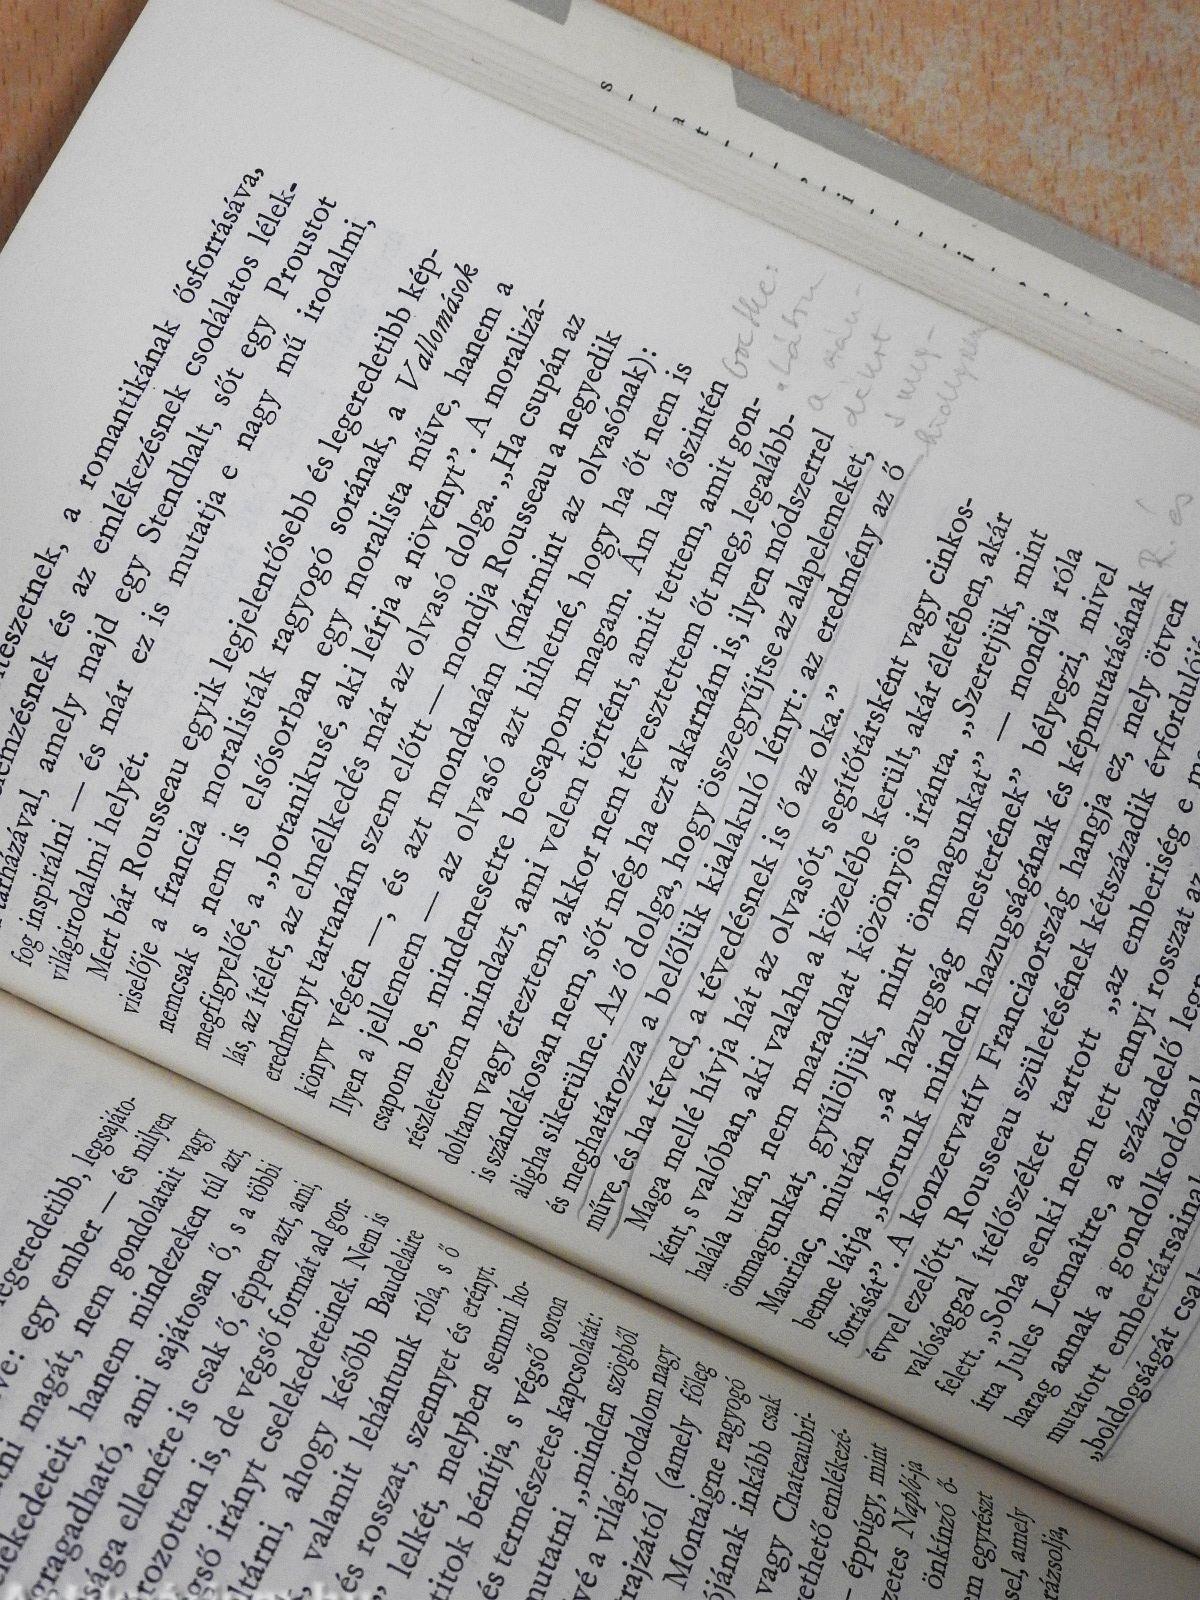 vé: egy ember — és milyen
legegeredetibb, legsajáto-
magát, nem gondolatait vagy
lekedeteit, hanem mindezeken túl azt,
oragadható, ami sajátosan ő, s a többi
sága ellenére is csak ő, éppen azt, ami,
rozottan is, de végső formát ad gon-
gső irányt cselekedeteinek. Nem is
ltárni, ahogy később Baudelaire
valamit lehántunk róla, s ő
és rosszat, szennyet és erényt.
lelkét, melyben semmi ho-
titok bénítja, s végső soron
és természetes kapcsolatát.
mutatni „minden szögből
vé a világirodalom nagy
rajzától (amely főleg
Montaigne ragyogó
ójának inkább csak
vagy Chateaubri-
ethető emlékezé-
— éppúgy, mint
zetes Napló-ja
önkínzó ő-
em egyrészt
sel, amely
rázsolja,
tészetnek, a romantikának ősforrásáva,
lemzésnek és az emlékezésnek csodálatos lélek-
tárházával, amely majd egy Stendhalt, sőt egy Proustot
fog inspirálni — és már ez is mutatja e nagy mű irodalmi,
világirodalmi helyét.
Mert bár Rousseau egyik legjelentősebb és legeredetibb kép-
viselője a francia moralisták ragyogó sorának, a Vallomások
nemcsak s nem is elsősorban egy moralista műve, hanem a
megfigyelőé, a „botanikusé, aki leírja a növényt”. A moralizá-
lás, az ítélet, az elmélkedés már az olvasó dolga. „Ha csupán az
eredményt tartanám szem előtt — mondja Rousseau a negyedik
könyv végén —, és azt mondanám (mármint az olvasónak):
Ilyen a jellemem — az olvasó azt hihetné, hogy ha őt nem is
csapom be, mindenesetre becsapom magam. Ám ha őszintén
részletezem mindazt, ami velem történt, amit tettem, amit gon-
doltam vagy éreztem, akkor nem tévesztettem őt meg, legalább-
is szándékosan nem, sőt még ha ezt akarnám is, ilyen módszerrel
aligha sikerülne. Az ő dolga, hogy összegyűjtse az alapelemeket,
és meghatározza a belőlük kialakuló lényt: az eredmény az ő
műve, és ha téved, a tévedésnek is ő az oka.”
Maga mellé hívja hát az olvasót, segítőtársként vagy cinkos-
ként, s valóban, aki valaha a közelébe került, akár életében, akár
halála után, nem maradhat közönyös iránta. „Szeretjük, mint
önmagunkat, gyűlöljük, mint önmagunkat” — mondja róla
Mauriac, miután „a hazugság mesterének” bélyegzi, mivel
benne látja „korunk minden hazugságának és képmutatásának
forrását”. A konzervatív Franciaország hangja ez, mely ötven
évvel ezelőtt, Rousseau születésének kétszázadik évfordulój
valósággal ítélőszéket tartott „az emberiség e
felett. „Soha senki nem tett ennyi rosszat az
írta Jules Lemaître, a századelő
harag annak a gondolkodóna
mutatott embertársainal
„boldogságát csak
Goethe:
a
R. és